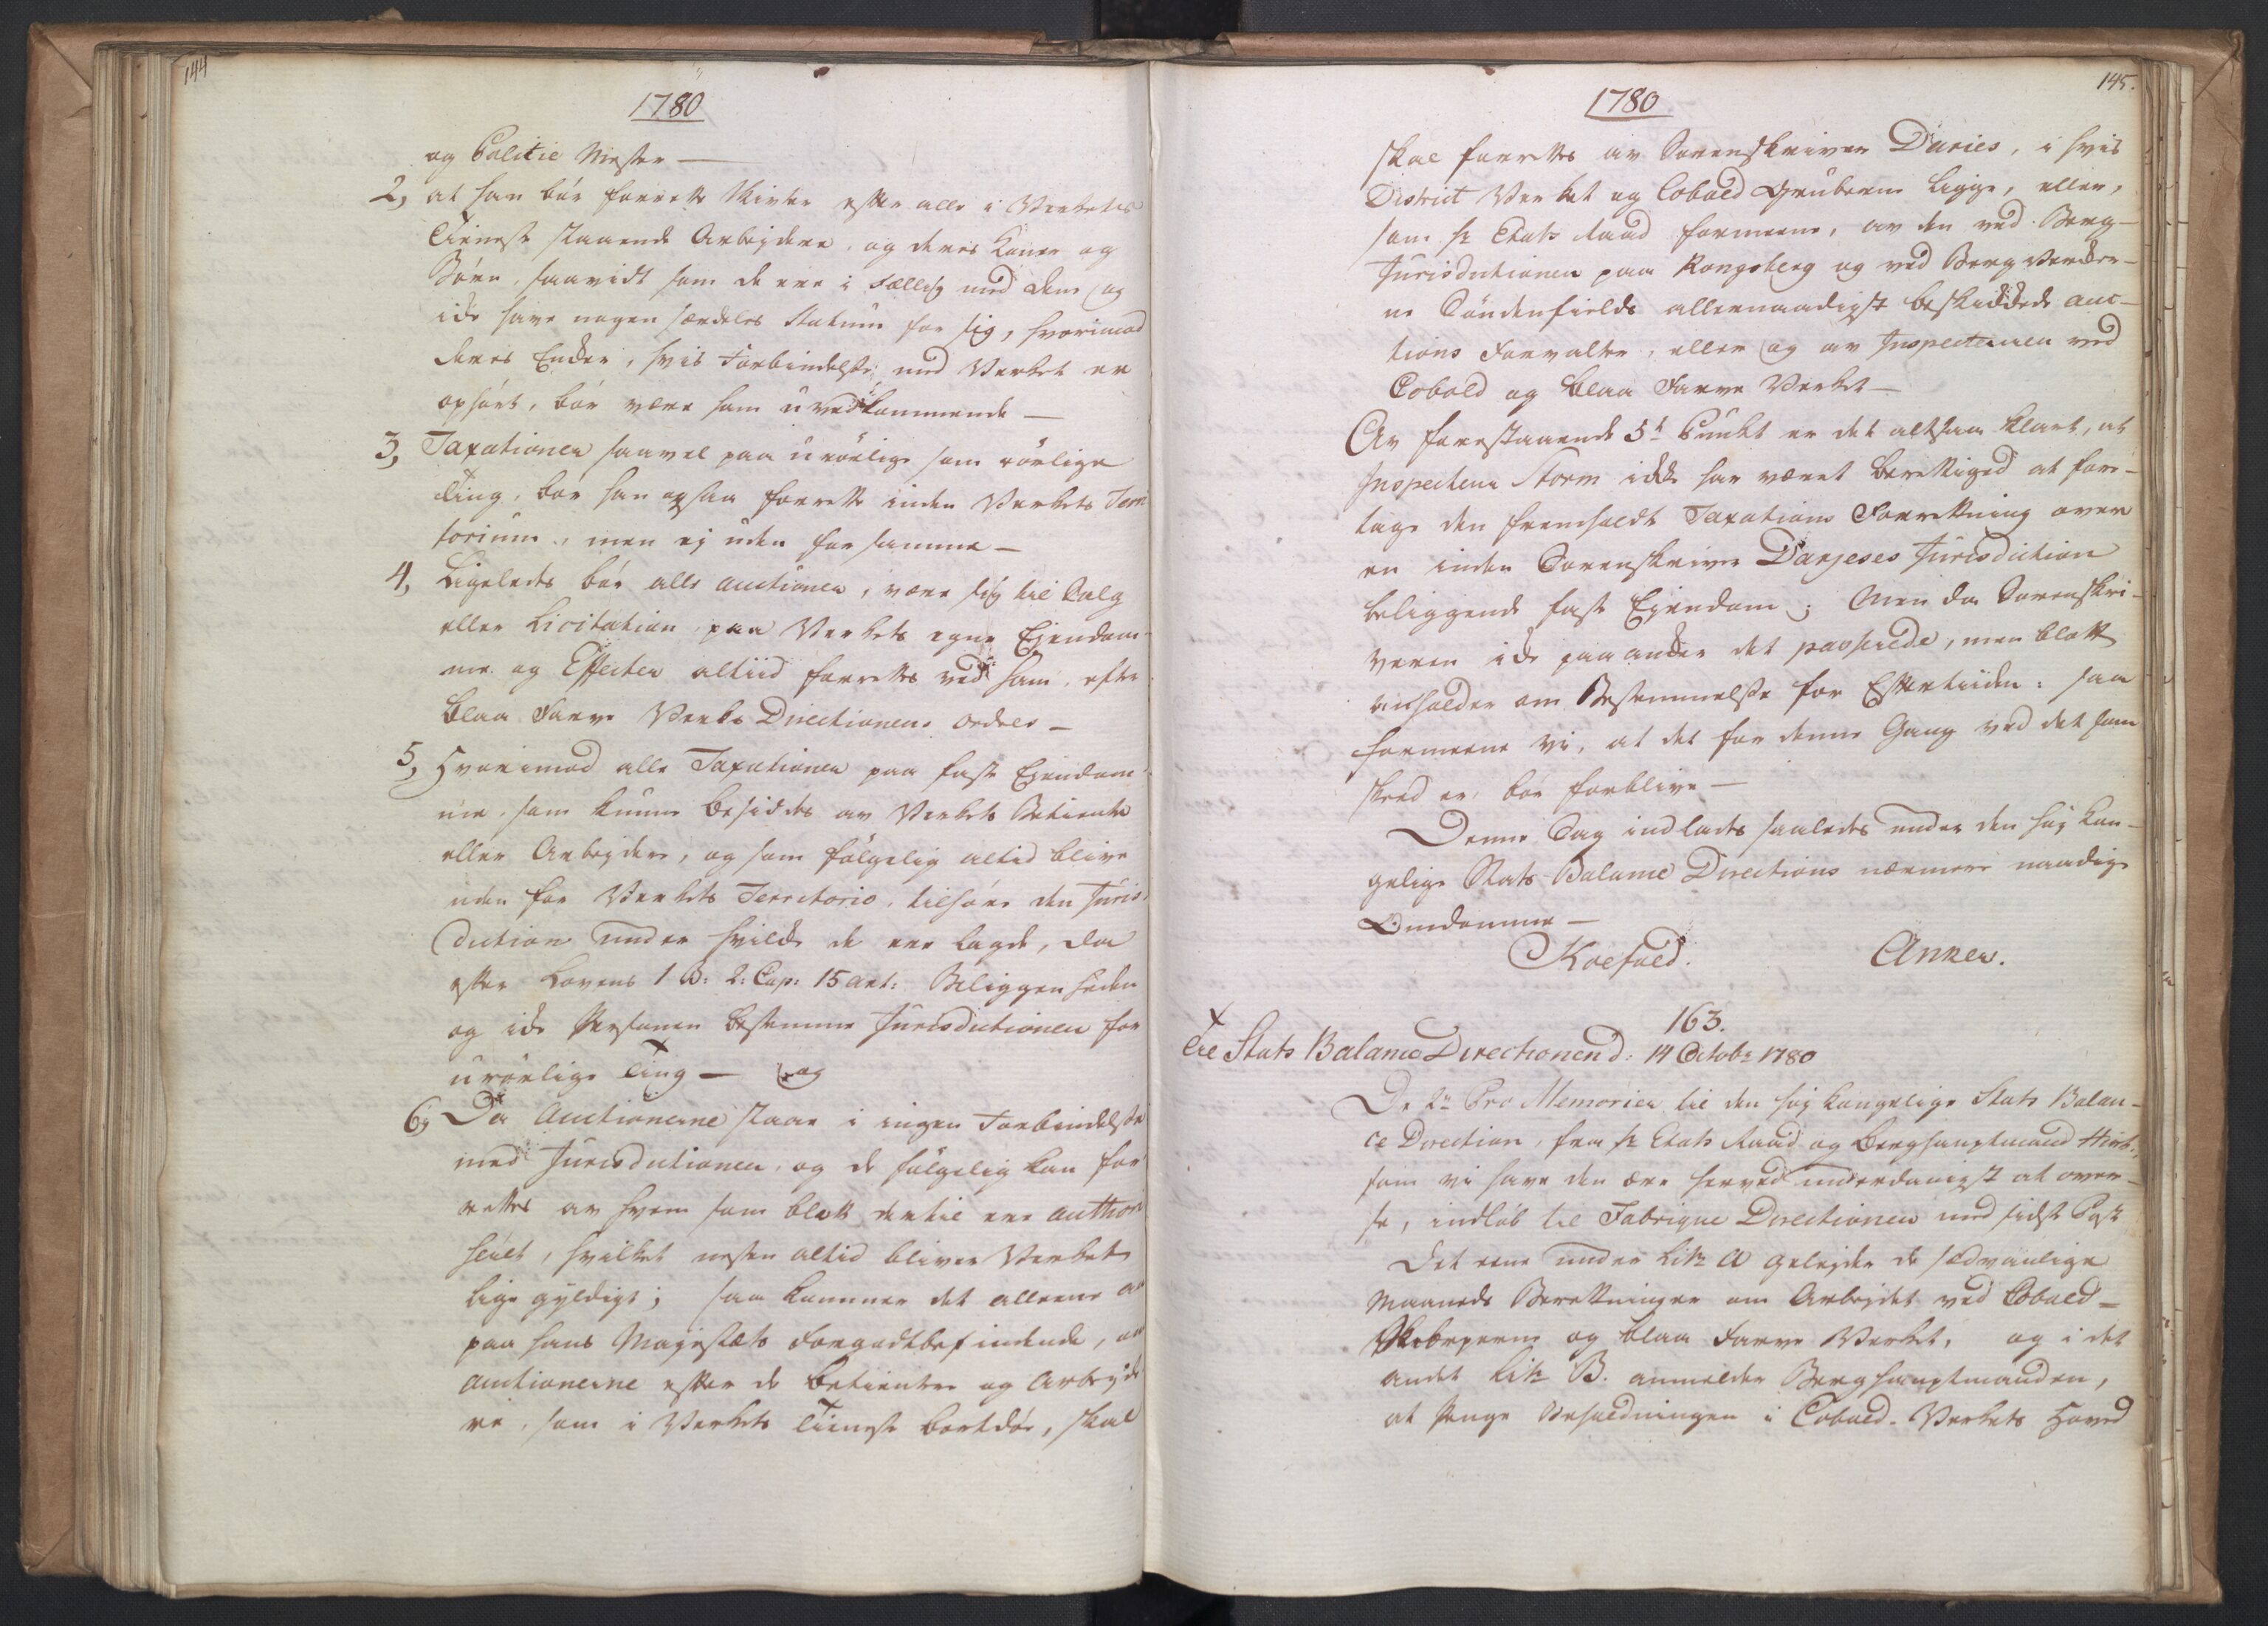 144
1780
og Politie Mester —
2, at han bör forrette Skifter efter alle i Verkets
Tieneste staaende Arbejdere, og deres Koner og
Börn, saavidt som de ere i Fællig med dem og
icke have nogen særdeles Statum for sig, hvorimod
deres Encker, hvis Forbindelse med Verket er
ophört, bör være ham uvedkommende —
3, Taxationer saavel paa urörlige som rörlige
Ting, bör han ogsaa forrette inden Verkets Terri
torium, men ej uden for samme —
4, Ligeledes bör alle Auctioner, være sig til Salg
eller Licitation paa Verkets egne Ejendom-
me og Effecter altiid forrettes ved ham, efter
Blaa Farve Verks Directionens ordres —
5, Hvorimod alle Taxationer paa faste Ejendom-
me, som kunne besiddes av Verkets Betiente
eller Arbejdere, og som fölgelig altid blive
uden for Verkets Territorio, tilhöre den Juris-
diction under hvilcke de ere lagde, da
efter Lovens 1 B: 2: Cap: 15 art: Beliggenheden
og icke Personen bestemme Jurisdictionen for
urörlige Ting — og
6, Da Auctionerne staae i ingen Forbindelse
med Jurisdictionen, og de fölgelig kan for
rettes av hvem som blot dertil ere authori
seret, hvilket nesten altid bliver Verket
lige gyldigt; saa kommer det alleene an
paa Hans Majestæts Forgodtbefindende, om
Auctionerne efter de Betientere og Arbejde
re, som i Verkets Tieneste bortdöe, skal
145.
1780
skal forrettes av Sorenskriver Daries, i hvis
District Verket og Cobold Gruberne ligge, eller,
som Hr Etats Raad formeene, av den ved Berg-
Jurisdictionen paa Kongsberg og ved Berg Verker-
ne Söndenfields allernaadigst beskickede Auc-
tions Forvalter, eller og av Inspecteuren ved
Cobold og Blaa Farve Verket —
Av forestaaende 5t Punkt er det altsaa klart, at
Inspecteur Storm icke har været berettiged at fore-
tage den fremholdt Taxations Forretning over
en inden Sorenskriver Darjeses Jurisdiction
beliggende fast Ejendom; Men da Sorenskri-
veren icke paaancker det passerede, men blot
anholder om Bestemmelse for Eftertiiden: saa
formeene vi, at det for denne Gang ved det som
skeed er, bör forblive —
Denne Sag indlades saaledes under den höj Kon-
gelige Stats-Balance Directions nærmere naadige
Omdömme —
Koefoed. Anker.
163.
Til Stats Balance Directionen d: 14 Octobr 1780
De 2de Pro Memorier til den höj kongelige Stats Balan-
ce Direction, fra Hr Etats Raad og Berghauptmand Hiort,
som vi have den ære herved underdanigst at over-
se, indlöb til Fabrique Directionen med sidste Post
Det eene under Litr A gelejder de sædvanlige
Maaneds Beretninger om Arbejdet ved Cobold-
Skiærperne og Blaa Farve Verket, og i det
andet Litr B. anmelder Berghauptmanden,
at Penge Beholdningen i Cobold-Verkets Hoved